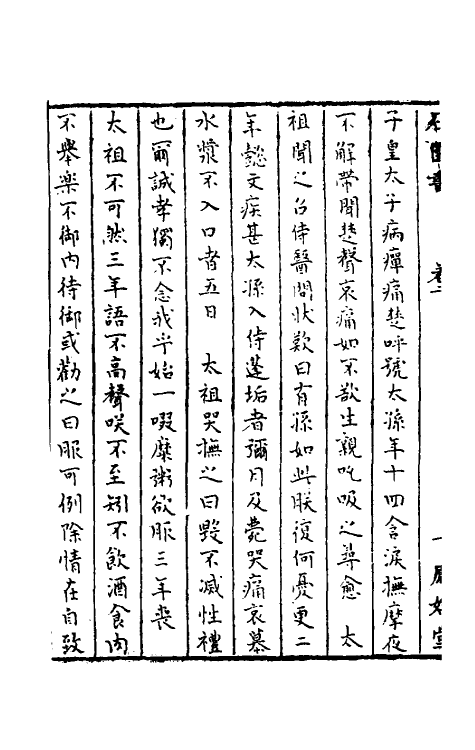 石匱書　卷二　一　鳳嬉堂
子皇太子病癉痛楚呼號太孫年十四含淚撫摩夜
不解帶聞楚聲哀痛如不欲生親吮吸之尋愈　太
祖聞之召侍醫問狀歎曰有孫如此朕復何憂更二
年懿文疾甚太孫入侍蓬垢者彌月及薨哭痛哀慕
水漿不入口者五日　太祖哭撫之曰毀不滅性禮
也爾誠孝獨不念我乎始一啜糜粥欲服三年喪
太祖不可然三年語不高聲咲不至矧不飲酒食肉
不舉楽不御內待御或勸之曰服可例除情在自致